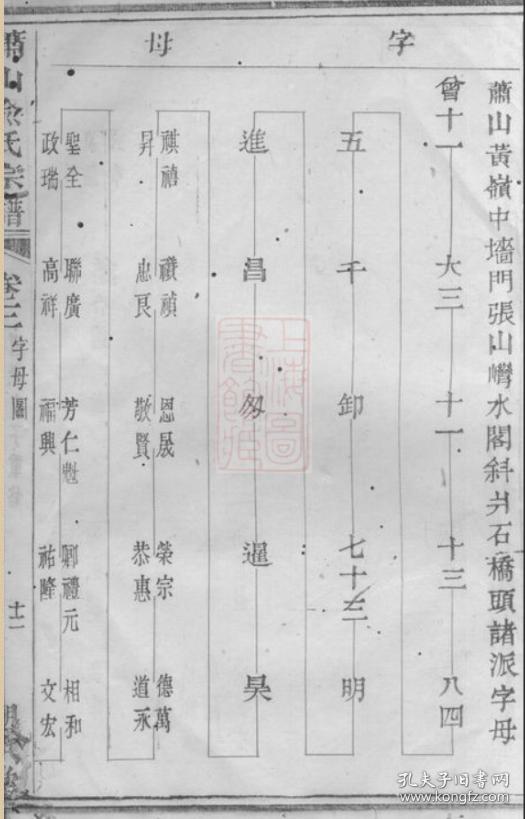 字母
蕭山黃嶺中墻門張山水閣斜爿石橋頭諸派字母
曾十一 大三 十一 十三 八四
五 千 卸 七十三 明
進 昌 暹 昊
祺禧 禎 恩晟 榮宗 德萬
昇 忠良 敬賢 恭惠 道永
聖全 聯廣 芳仁魁 卿禮元 相和
政瑞 高祥 福興 祐隆 文宏
蕭山氏宗譜 卷三 字母圖 十二
上海圖書館藏
孔夫子旧书网
www.kongfz.com